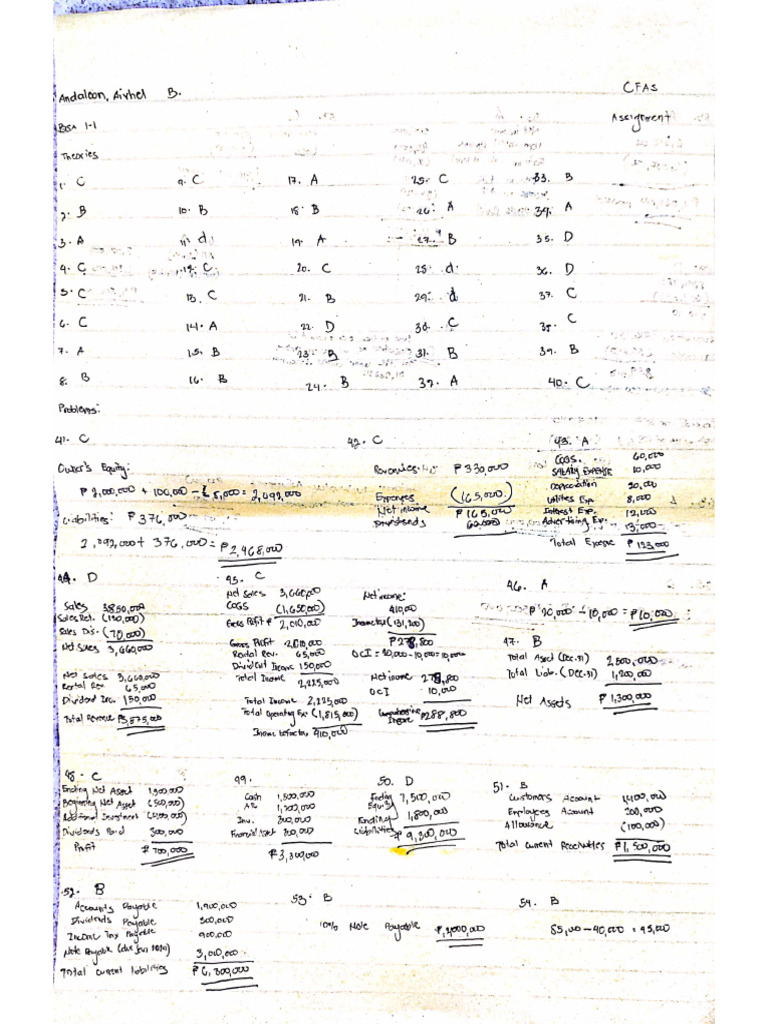 Andaleon, Airhel B.
CFAS
BSA 1-1
Assignment
Theories
1. C
2. B
3. A
4. C
5. C
6. C
7. A
8. B
9. C
10. B
11. d
12. C
13. C
14. A
15. B
16. B
17. A
18. B
19. A
20. C
21. B
22. D
23. B
24. B
25. C
26. A
27. B
28. d
29. d
30. C
31. B
32. A
33. B
34. A
35. D
36. D
37. C
38. C
39. B
40. C
Problems:
41. C
Owner's Equity:
₱ 2,000,000 + 100,000 - 8,000 = 2,092,000
Liabilities: ₱ 376,000
2,092,000 + 376,000 = ₱ 2,468,000
42. C
Revenues ₱ 330,000
Expenses (165,000)
Net income ₱ 165,000
Dividends
43. A
COGS 60,000
Salary Expense 10,000
Depreciation 20,000
Utilities Exp. 8,000
Interest Exp. 12,000
Advertising Exp. 13,000
Total Expense ₱ 123,000
44. D
Sales 3,850,000
Sales Ret. (120,000)
Sales Dis. (70,000)
Net Sales 3,660,000
Net Sales 3,660,000
Rental Rev 65,000
Dividend Inc. 150,000
Total Revenue ₱3,875,000
45. C
Net Sales 3,660,000
COGS (1,650,000)
Gross Profit ₱ 2,010,000
Gross Profit 2,010,000
Rental Rev. 65,000
Dividend Income 150,000
Total Income 2,225,000
Total Income 2,225,000
Total Operating Exp (1,815,000)
410,000
Net income:
410,000
Income tax (131,200)
₱278,800
OCI = 20,000 - 10,000 = 10,000
Net income 278,800
OCI 10,000
Comprehensive Income ₱288,800
46. A
₱ 20,000 - 10,000 = ₱10,000
47. B
Total Asset (Dec. 31) 2,500,000
Total Liab. (Dec. 31) 1,200,000
Net Assets ₱ 1,300,000
48. C
Ending Net Asset 1,300,000
Beginning Net Asset
Additional Investment
Dividends Paid 300,000
Profit ₱ 700,000
49.
Cash 1,500,000
A/R 1,200,000
Inv.
Financial Asset
₱ 3,300,000
50. D
Ending Equity 7,500,000
Ending Liabilities 1,800,000
₱ 9,300,000
51. B
Customers Account 1,400,000
Employees Account 200,000
Allowance (100,000)
Total Current Receivables ₱1,500,000
52. B
Accounts Payable 1,900,000
Dividends Payable 500,000
Income Tax Payable 900,000
Note Payable 3,000,000
Total Current liabilities ₱ 6,300,000
53. B
10% Note Payable
54. B
85,000 - 40,000 = 45,000